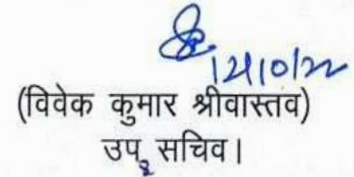 12/10/22
(विवेक कुमार श्रीवास्तव)
उप सचिव।